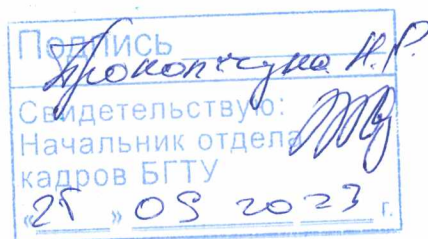 Подпись
Прокопчука Н.Р.
Свидетельствую:
Начальник отдела
кадров БГТУ
«25» 09 2023 г.